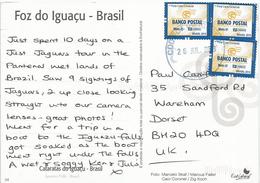 Foz do Iguaçu - Brasil
Just spent 10 days on a
Just Jaguars tour in the
Pantenal wet lands of
Brazil. Saw 9 sightings of
Jaguars, 2 up close looking
straight into our camera
lenses - great photos!
Went for a trip in a
boat to the Iguazu falls
got soaked as the boat
went right under the falls.
A wet & soggy Ken & Julie
X
Cataratas do Iguaçu - Brasil
BANCO POSTAL
BANCO POSTAL
BANCO POSTAL
Paul
35 Sandford Rd
Wareham
Dorset
BH20 4DQ
U.K.
Foto: Marcelo Skaf / Marcus Fader
Caio Coronel / Zig Koch